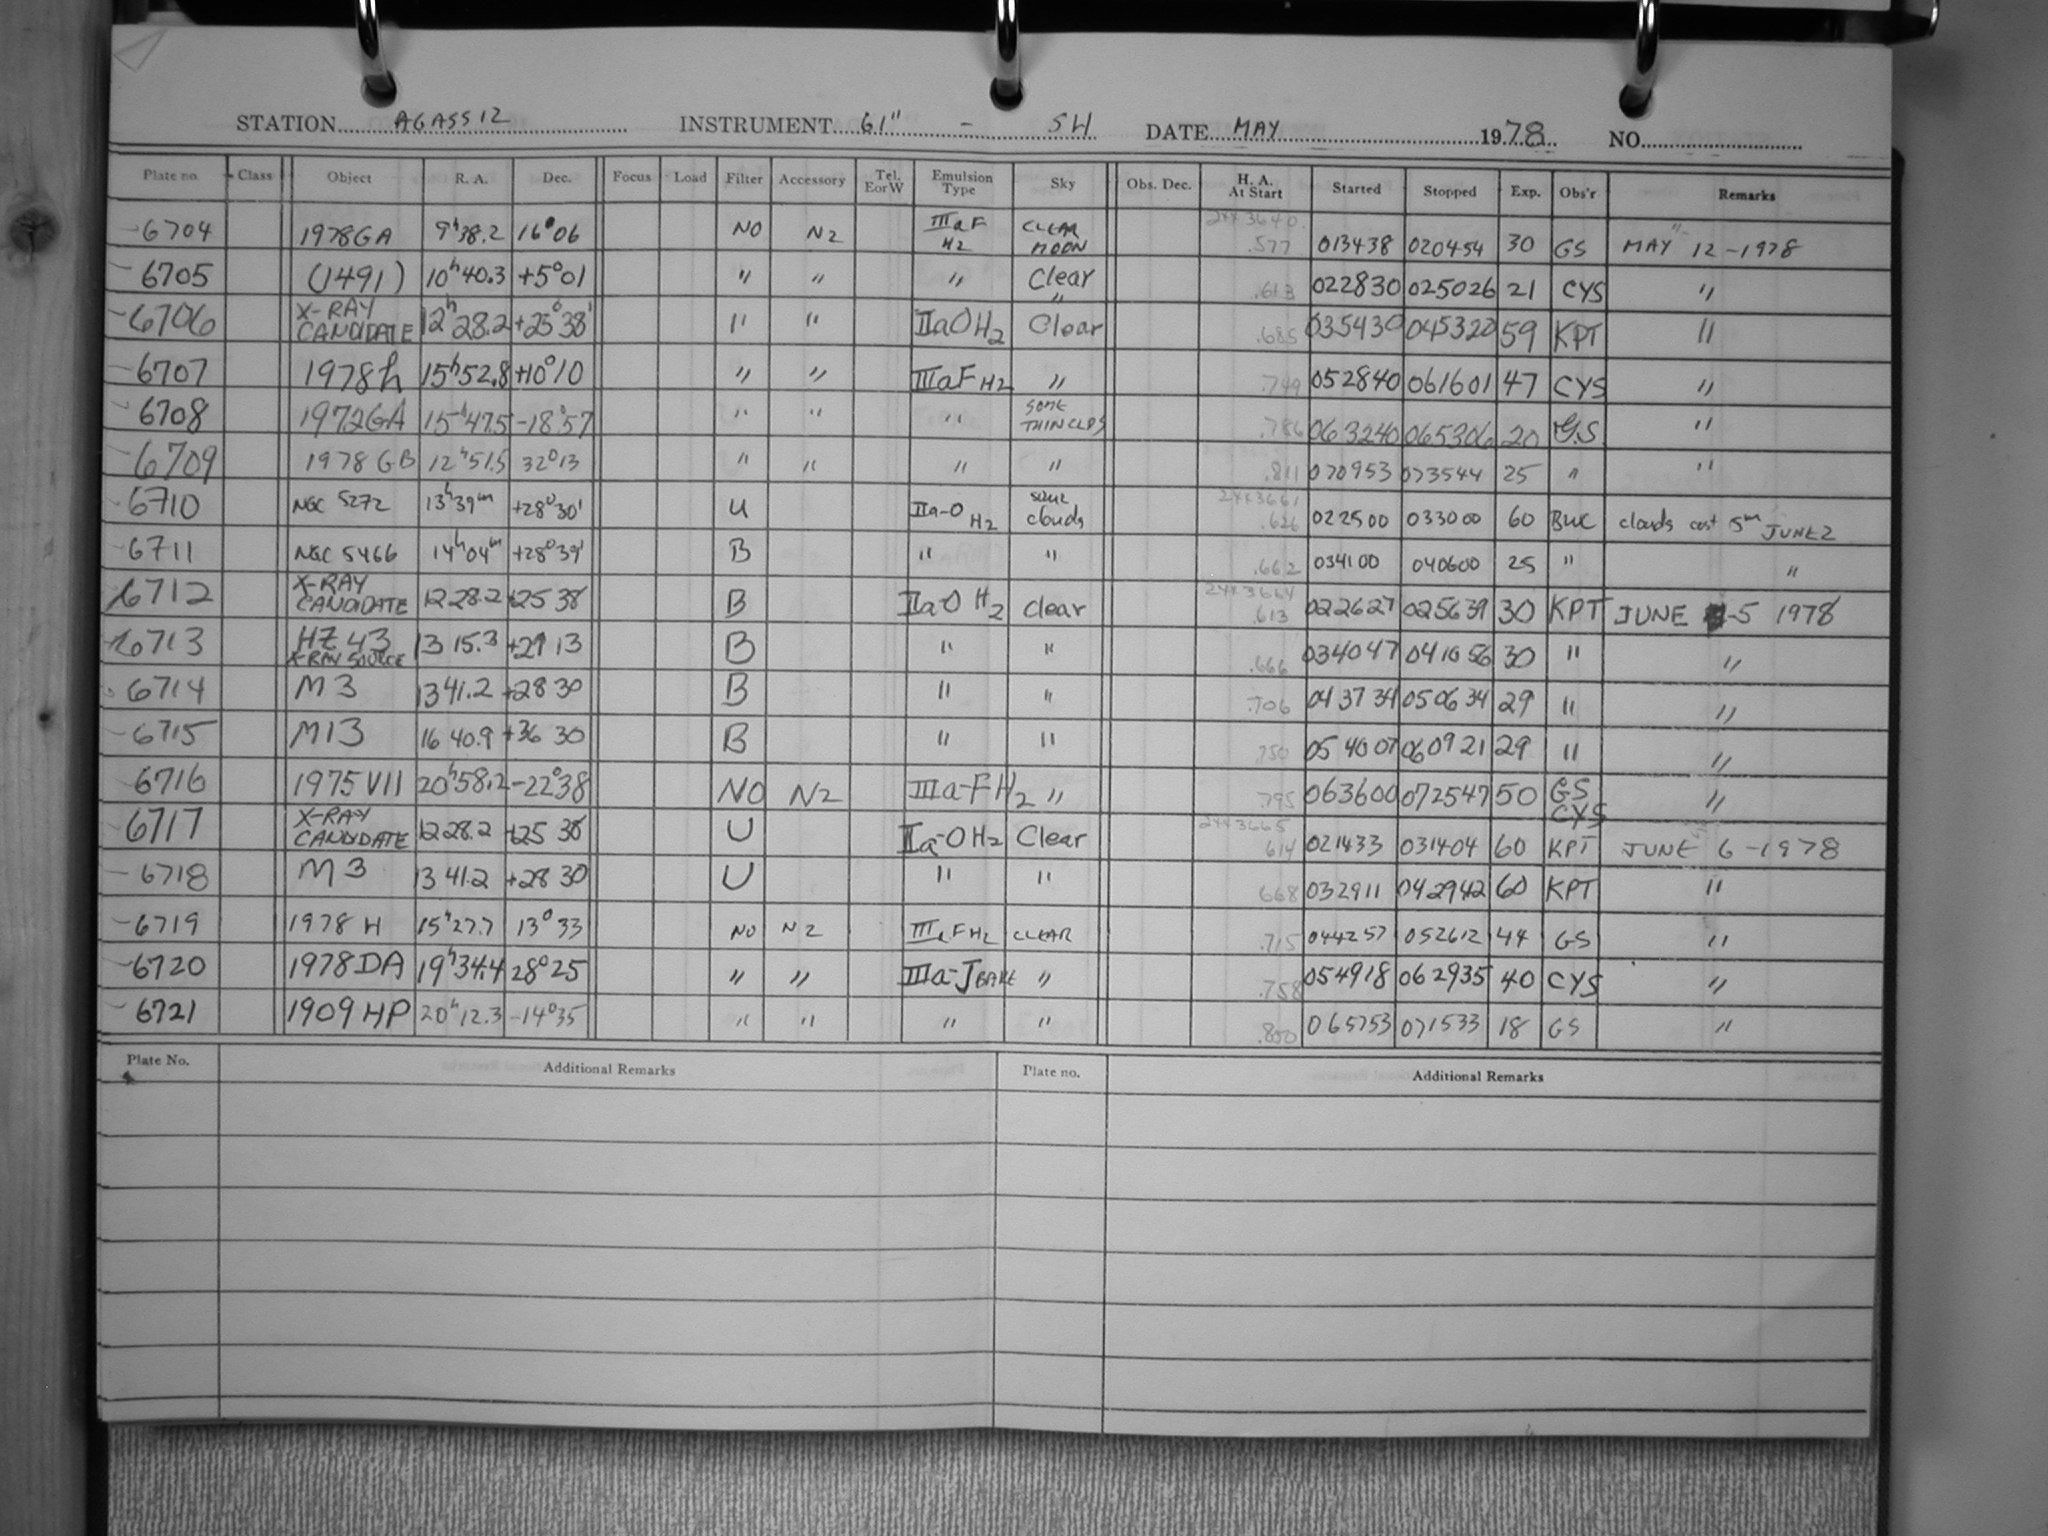 STATION AGASSIZ INSTRUMENT 61" - SH DATE MAY 1978 NO.
Plate no. Class Object R. A. Dec. Focus Load Filter Accessory Tel. E or W Emulsion Type Sky Obs. Dec. H. A. At Start Started Stopped Exp. Obs'r Remarks
6704 1978GA 9h38.2 16°06 NO N2 IIIaF H2 CLEAR MOON 2443640. .577 013438 020454 30 GS MAY 12-1978
6705 (1491) 10h40.3 +5°01 " " " Clear .613 022830 025026 21 CYS "
6706 X-RAY CANDIDATE 12h28.2 +25°38' " " IIaO H2 Clear .685 035430 045320 59 KPT "
6707 1978h 15h52.8 +10°10 " " IIIaF H2 " .749 052840 061601 47 CYS "
6708 1972GA 15h47.5 -18°57 " " " SOME THIN CLDS .786 063240 065306 20 GS "
6709 1978 GB 12h51.5 32°13 " " " " .811 070953 073544 25 " "
6710 NGC 5272 13h39m +28°30' U IIa-O H2 some clouds 2443661 .626 022500 033000 60 BWC clouds cost 5m JUNE 2
6711 NGC 5466 14h04m +28°39' B " " .662 034100 040600 25 " "
6712 X-RAY CANDIDATE 12 28.2 +25 38 B IIa-O H2 clear 2443664 .613 022627 025639 30 KPT JUNE 5 1978
6713 HZ 43 X-RAY SOURCE 13 15.3 +29 13 B " " .666 034047 041056 30 " "
6714 M3 13 41.2 +28 30 B " " .706 043734 050634 29 " "
6715 M13 16 40.9 +36 30 B " " .750 054007 060921 29 " "
6716 1975 VII 20h58.2 -22°38 NO N2 IIIa-F H2 " .795 063600 072547 50 GS CYS "
6717 X-RAY CANDIDATE 12 28.2 +25 38 U IIa-O H2 Clear 2443665 614 021433 031404 60 KPT JUNE 6-1978
6718 M3 13 41.2 +28 30 U " " 668 032911 042942 60 KPT "
6719 1978 H 15h27.7 13°33 NO N2 IIIaF H2 CLEAR .715 044257 052612 44 GS "
6720 1978DA 19h34.4 28°25 " " IIIa-J BAKE " .758 054918 062935 40 CYS "
6721 1909 HP 20h12.3 -14°35 " " " " .800 065753 071533 18 GS "
Plate No. Additional Remarks Plate no. Additional Remarks